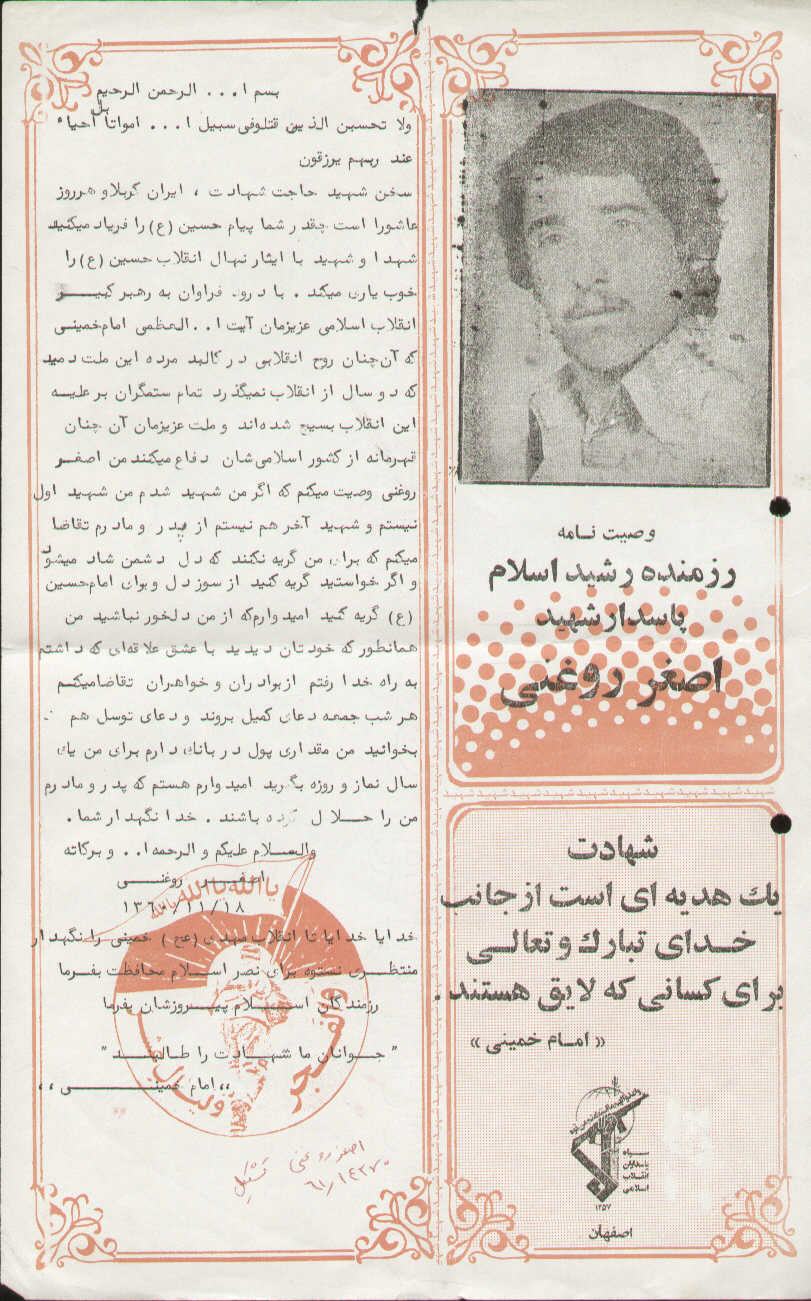 بسم ا... الرحمن الرحیم
ولا تحسبن الذین قتلوفی سبیل ا... امواتا بل احیاء
عند ربهم یرزقون
سخن شهید حاجت شهادت ، ایران کربلاو هرروز
عاشورا است چقدر شما پیام حسین (ع) را فریاد میکنید
شهدا و شهید با ایثار نهال انقلاب حسین (ع) را
خوب یاری میکند . با درود فراوان به رهبر کبیر
انقلاب اسلامی عزیزمان آیت ا..العظمی امام‌خمینی
که آن‌چنان روح انقلابی در کالبد مرده این ملت دمید
که دو سال از انقلاب نمیگذرد تمام ستمگران بر علیه
این انقلاب بسیج شده‌اند و ملت عزیزمان آن چنان
قهرمانه از کشور اسلامی‌شان دفاع میکنند من اصغر
روغنی وصیت میکنم که اگر من شهید شدم من شهید اول
نیستم و شهید آخر هم نیستم از پدر و مادرم تقاضا
میکنم که برای من گریه نکنند که دل دشمن شاد میشود
و اگر خواستید گریه کنید از سوز دل وبرای امام‌حسین
(ع) گریه کنید امیدوارم‌که از من دلخور نباشید من
همانطور که خودتان دیدید با عشق علاقه‌ای که داشتم
به راه خدا رفتم ازبرادران و خواهران تقاضامیکنم
هر شب جمعه دعای کمیل بروند و دعای توسل هم
بخوانید من مقداری پول در بانک دارم برای من یک
سال نماز و روزه بگیرید امیدوارم هستم که پدر و مادرم
من را حلال کرده باشند . خدا نگهدار شما.
والسلام علیکم و الرحمه ا.. و برکاته
اصغر روغنی
۱۳۶۰/۱۱/۱۸
خدایا خدایا تا انقلاب مهدی (عج) خمینی را نگهدار
منتظری نستوه برای نصر اسلام محافظت بفرما
رزمندگان اسلام پیروزشان بفرما
" جوانان ما شهادت را طالبند "
،،امام خمینی،،
یاالله یاالله یاالله
والفجر
ولیال
اصغر روغنی
وصیت نامه
رزمنده رشید اسلام
پاسدار شهید
اصغر روغنی
شهید شهید شهید شهید شهید شهید شهید
شهادت
یک هدیه ای است از جانب
خدای تبارک و تعالی
برای کسانی که لایق هستند .
« امام خمینی »
سپاه
پاسداران
انقلاب
اسلامی
۱۳۵۷
اصفهان